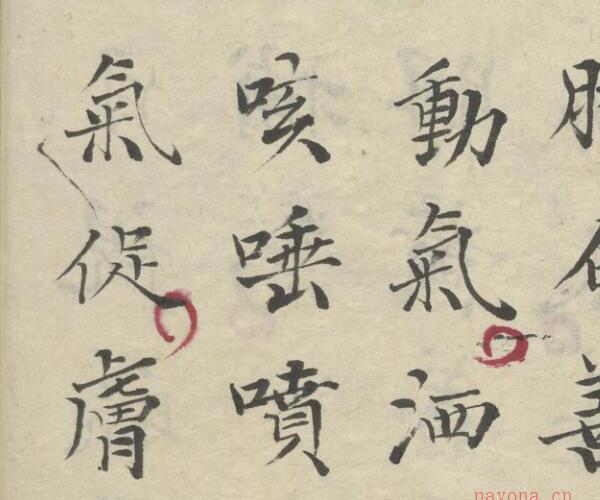 動氣洒
咳唾噴
氣促膚
nayona.cn